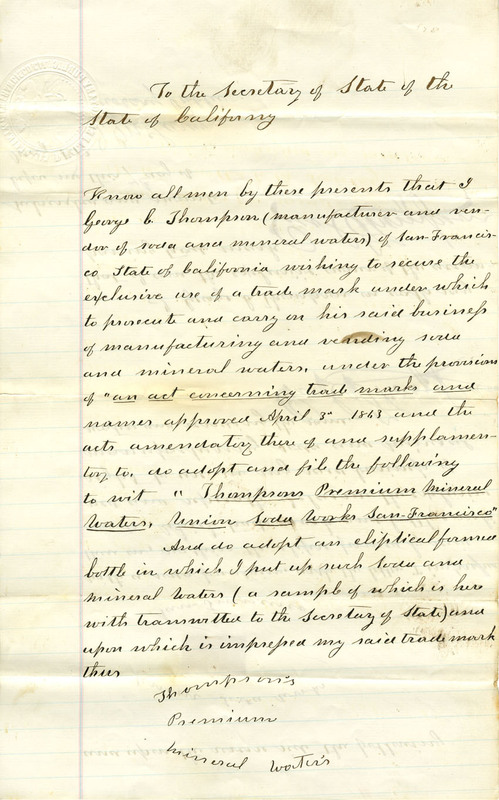 To the Secretary of State of the
State of Californy
Know all men by these presents that I
George C. Thompson (manufacturer and ven-
dor of soda and mineral waters) of San Francis-
co State of California wishing to secure the
exclusive use of a trade mark under which
to prosecute and carry on his said business
of manufacturing and vending soda
and mineral waters, under the provisions
of "an act concerning trade marks and
names approved April 3d 1863 and the
acts amendatory there of and supplamen-
tory to, do adopt and file the following
to wit "Thompsons Premium Mineral
Waters, Union Soda Works San-Francisco"
And do adopt an eliptical formed
bottle in which I put up such soda and
mineral waters (a sample of which is here
with transmitted to the Secretary of State) and
upon which is impressed my said trade mark
thus
Thompson's
Premium
Mineral Waters